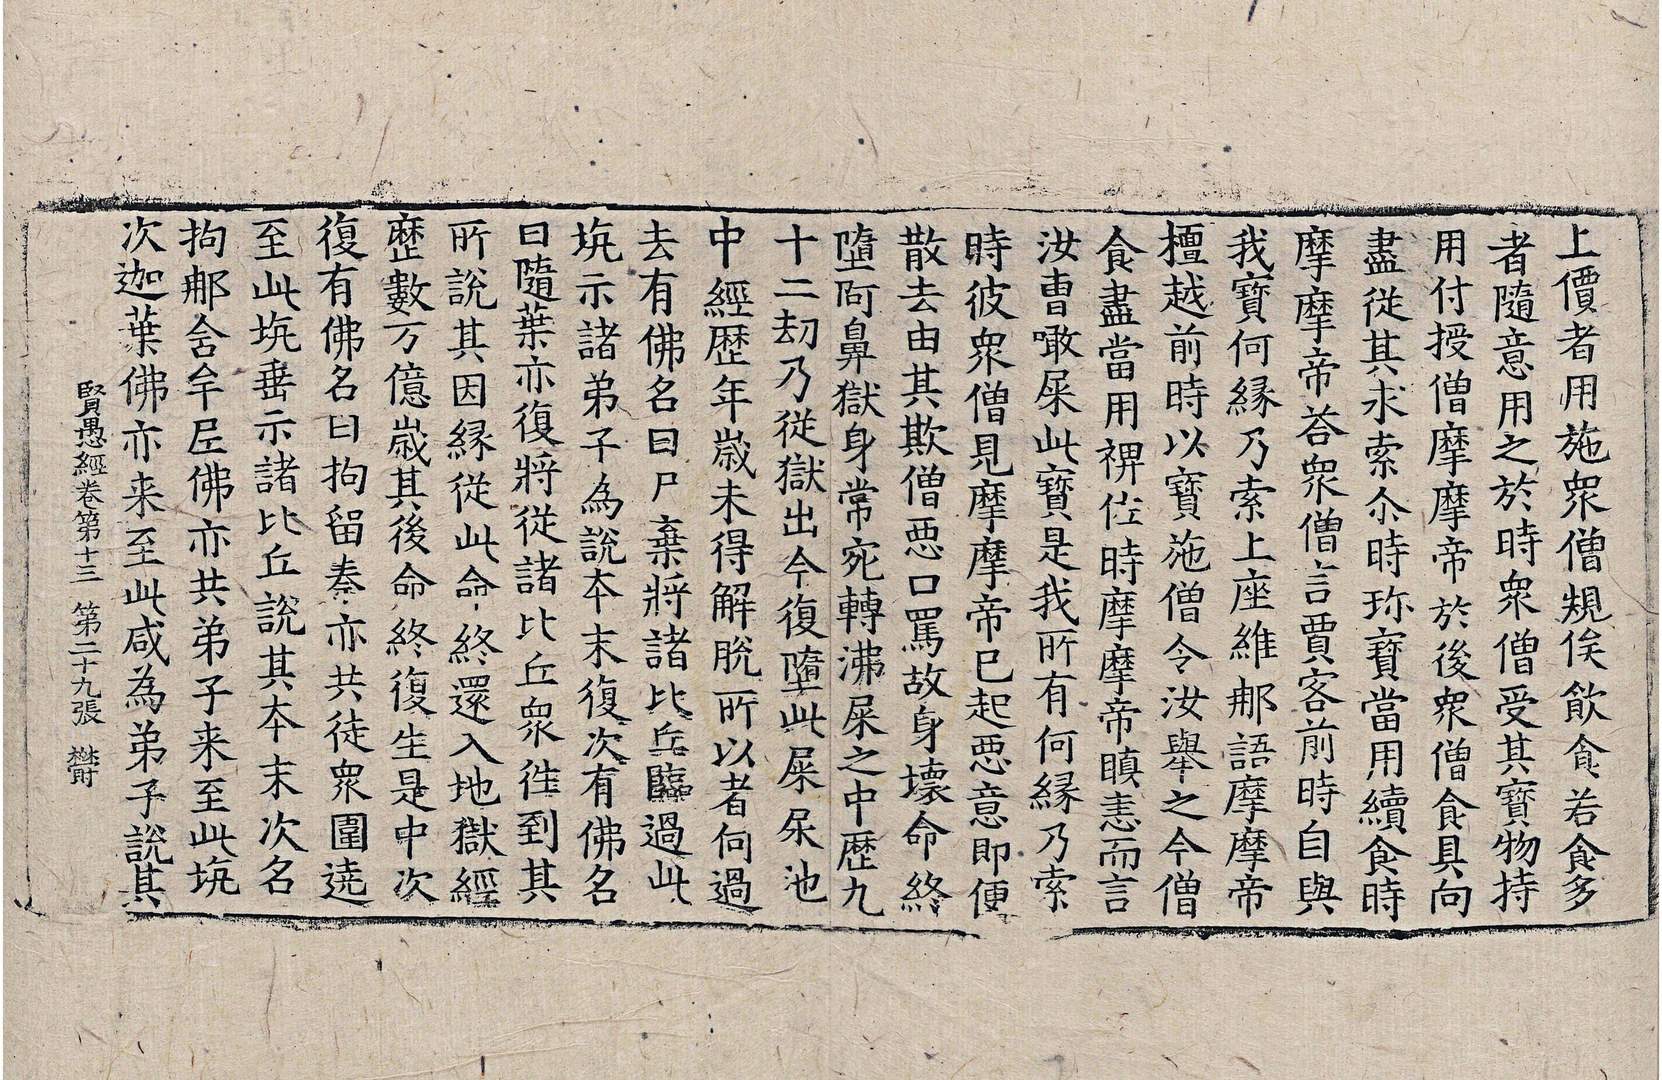 上價者用施衆僧規俟飲食若食多
者隨意用之於時衆僧受其寶物持
用付授僧摩摩帝於後衆僧食具向
盡從其求索尒時珎寶當用續食時
摩摩帝荅衆僧言賈客前時自與
我寶何縁乃索上座維那語摩摩帝
檀越前時以寶施僧令汝舉之今僧
食盡當用裨佐時摩摩帝瞋恚而言
汝曹噉屎此寶是我所有何縁乃索
時彼衆僧見摩摩帝已起惡意即便
散去由其欺僧惡口罵故身壞命終
墮阿鼻獄身常宛轉沸屎之中歴九
十二劫乃從獄出今復墮此屎尿池
中經歴年歳未得解脫所以者何過
去有佛名曰尸棄將諸比丘臨過此
坑示諸弟子為說本末復次有佛名
曰隨葉亦復將從諸比丘衆徃到其
所說其因緣從此命終還入地獄經
歷數万億歳其後命終復生是中次
復有佛名曰拘留秦亦共徒衆圍遶
至此坑垂示諸比丘說其本末次名
拘那含牟尼佛亦共弟子来至此坑
次迦葉佛亦来至此咸為弟子說其
賢愚經卷第十三 第二十九張 欝